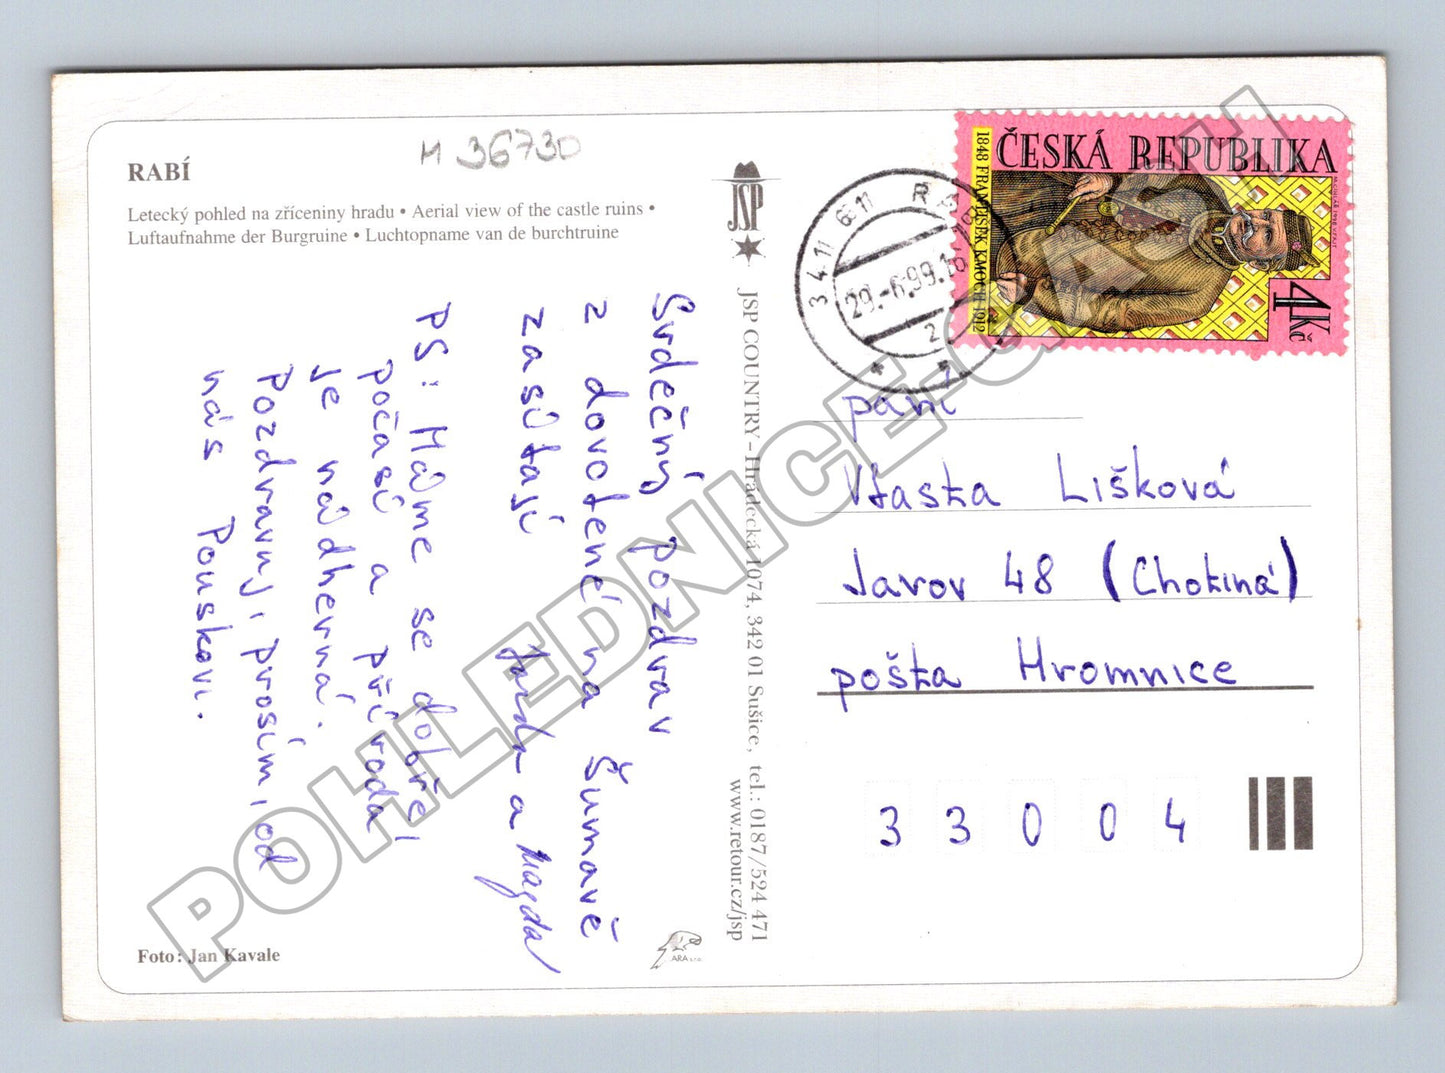 RABÍ
Letecký pohled na zříceniny hradu • Aerial view of the castle ruins •
Luftaufnahme der Burgruine • Luchtopname van de burchtruine
M 36730
JSP
JSP COUNTRY – Hrádecká 1074, 342 01 Sušice, tel.: 0187/524 471
www.retour.cz/jsp
ČESKÁ REPUBLIKA
1848 FRANTIŠEK KMOCH 1912
4Kč
34211
29.-6.99.16
2
Srdečný pozdrav
z dovolené na Šumavě
zasílají
Jarda a Magda
PS: Máme se dobře,
počasí a příroda
je nádherná.
Pozdravuj, prosím, od
nás Pouskovi.
paní
Vlasta Lišková
Javov 48 (Chotiná)
pošta Hromnice
3 3 0 0 4
Foto: Jan Kavale
ARA s.r.o.
POHLEDNICE.CASH